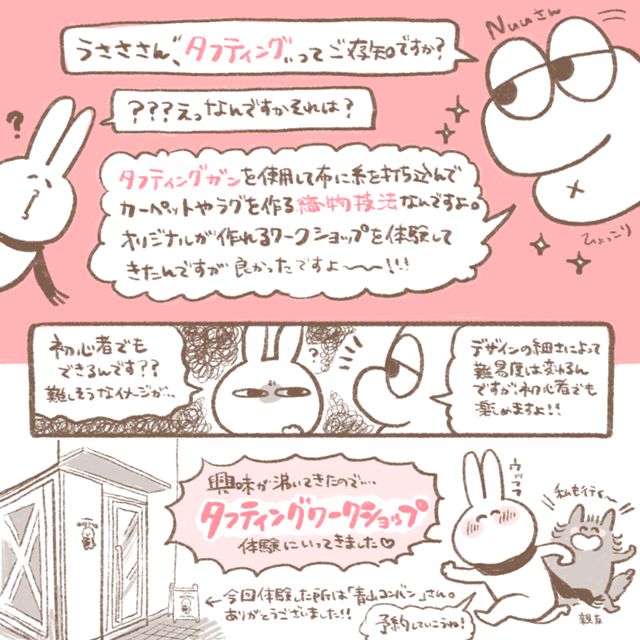 Nuuさん
うささん、"タフティング"ってご存知ですか?
???えっなんですかそれは?
?
タフティングガンを使用して布に糸を打ち込んで
カーペットやラグを作る織物技法なんですよ。
オリジナルが作れるワークショップを体験して
きたんですが良かったですよ〜〜!!!
ひょっこり
初心者でも
できるんです??
難しそうなイメージが…
?
デザインの細さによって
難易度は変わるん
ですが、初心者でも
楽しめますよ!!
興味が沸いてきたので…
タフティングワークショップ
体験にいってきました♡
ウフフフ
私も行く〜
←今回体験した所は「青山コンバン」さん。
ありがとうございました!!
予約していこうね!
親友